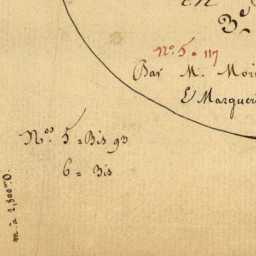 en
3e
No. 5 = 117
Par M. Moi
& Marguer
Nos. 5 = Bis 93
6 = Bis
m à 1,500m0.